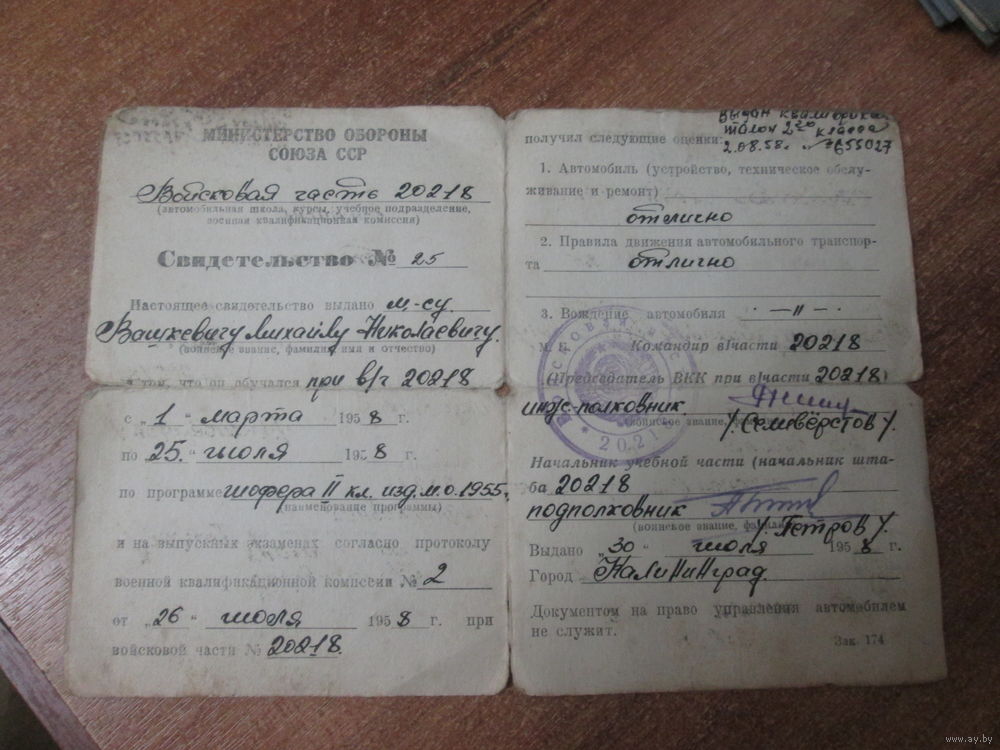 МИНИСТЕРСТВО ОБОРОНЫ
СОЮЗА ССР
Войсковая часть 20218
(автомобильная школа, курсы, учебное подразделение,
военная квалификационная комиссия)
Свидетельство № 25
Настоящее свидетельство выдано м-су
Вашкевичу Михаилу Николаевичу.
(воинское звание, фамилия имя и отчество)
в том, что он обучался при в/ч 20218
с „1" марта 1958 г.
по 25." июля 1958 г.
по программе шофера II кл. изд. м.о. 1955,
(наименование программы)
и на выпускных экзаменах согласно протоколу
военной квалификационной комиссии № 2
от „26" июля 1958 г. при
войсковой части № 20218.
выдан
талон 2го класса
2.08.58. 655027
получил следующие оценки:
1. Автомобиль (устройство, техническое обслу-
живание и ремонт)
отлично
2. Правила движения автомобильного транспор-
та отлично
3. Вождение автомобиля —"—
М. П. Командир в/части 20218
(Председатель ВКК при в/части 20218)
инж-полковник.
(воинское звание,
/Семивёрстов/.
Начальник учебной части (начальник шта-
ба 20218
подполковник
(воинское звание,
/Петров/.
Выдано „30" июля 1958 г.
Город Калининград.
Документом на право управления автомобилем
не служит.
Зак. 174
www.ay.by